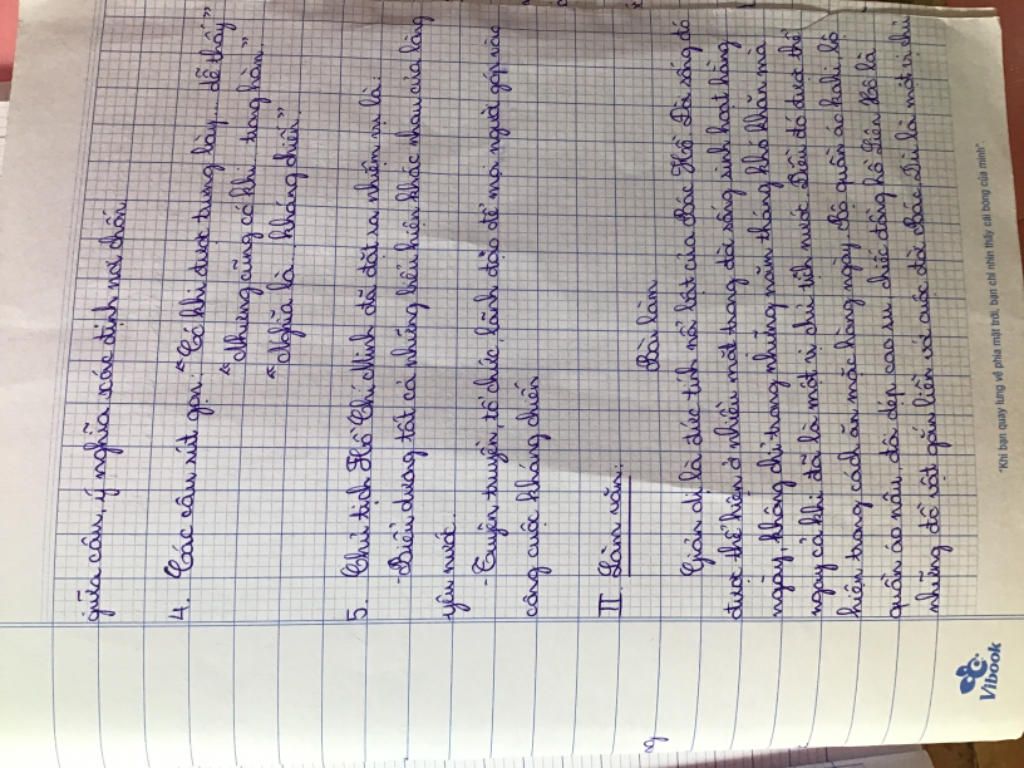 giữa câu, ý nghĩa xác định nơi chốn.
4. Các câu rút gọn: "Có khi được trưng bày... dễ thấy"
"Nhưng cũng có khi... trong hòm"
"Nghĩa là... kháng chiến..."
5. Chủ tịch Hồ Chí Minh đã đặt ra nhiệm vụ là:
- Biểu dương tất cả những biểu hiện khác nhau của lòng
yêu nước.
- Tuyên truyền, tổ chức, lãnh đạo để mọi người góp vào
công cuộc kháng chiến
II. Làm văn:
Bài làm
Giản dị là đức tính nổi bật của Bác Hồ. Lối sống đó
được thể hiện ở nhiều mặt trong đời sống sinh hoạt hằng
ngày, không chỉ trong những năm tháng khó khăn mà
ngay cả khi đã là một vị chủ tịch nước. Điều đó được thể
hiện trong cách ăn mặc hằng ngày. Bộ quần áo kaki, bộ
quần áo nâu, đôi dép cao su, chiếc đồng hồ Liên Xô là
những đồ vật gắn liền với cuộc đời Bác. Dù là một vị chủ
Vibook
"Khi bạn quay lưng về phía mặt trời, bạn chỉ nhìn thấy cái bóng của mình".